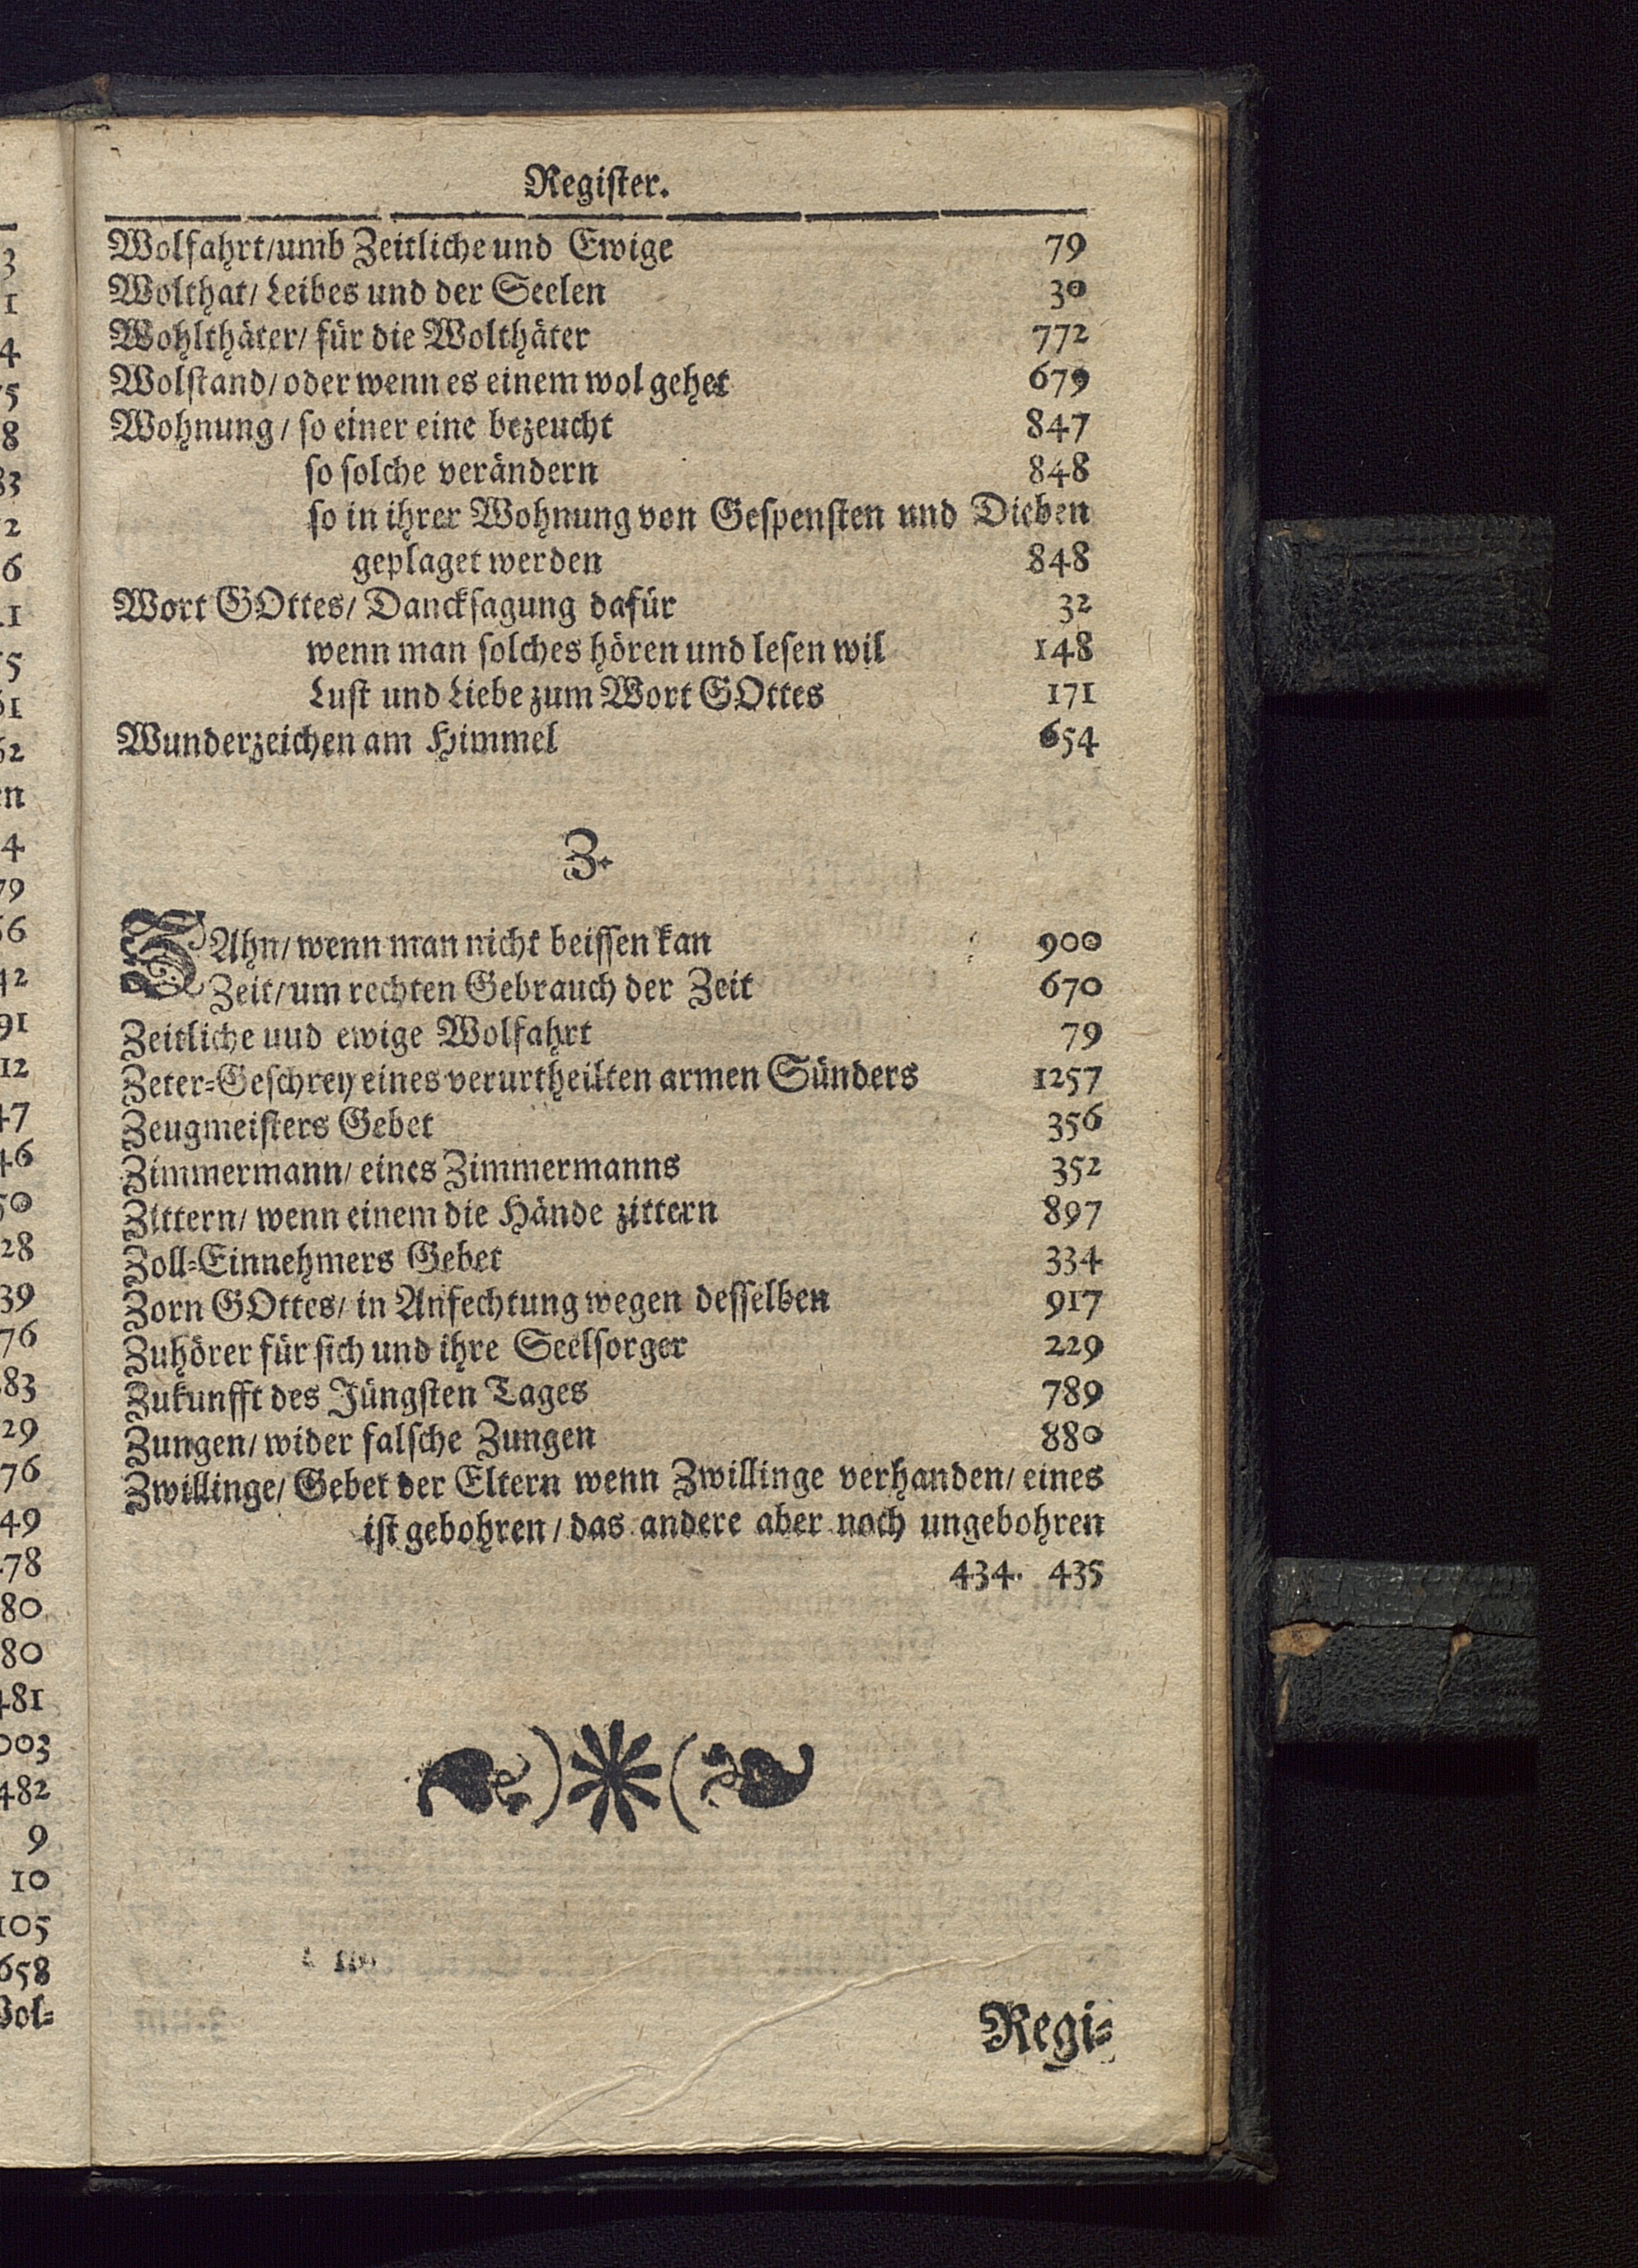 Register.
Wolfahrt/umb Zeitliche und Ewige 79
Wolthat/ Leibes und der Seelen 30
Wohlthäter/ für die Wolthäter 772
Wolstand/ oder wenn es einem wol gehet 679
Wohnung/ so einer eine bezeucht 847
so solche verändern 848
so in ihrer Wohnung von Gespensten und Dieben
geplaget werden 848
Wort GOttes/ Dancksagung dafür 32
wenn man solches hören und lesen wil 148
Lust und Liebe zum Wort GOttes 171
Wunderzeichen am Himmel 654
Z.
ZAhn/ wenn man nicht beissen kan 900
Zeit/ um rechten Gebrauch der Zeit 670
Zeitliche uud ewige Wolfahrt 79
Zeter=Geschrey eines verurtheilten armen Sünders 1257
Zeugmeisters Gebet 356
Zimmermann/ eines Zimmermanns 352
Zittern/ wenn einem die Hände zittern 897
Zoll=Einnehmers Gebet 334
Zorn GOttes/ in Anfechtung wegen desselben 917
Zuhörer für sich und ihre Seelsorger 229
Zukunfft des Jüngsten Tages 789
Zungen/ wider falsche Zungen 880
Zwillinge/ Gebet der Eltern wenn Zwillinge verhanden/ eines
ist gebohren/ das andere aber noch ungebohren
434. 435
Regi=